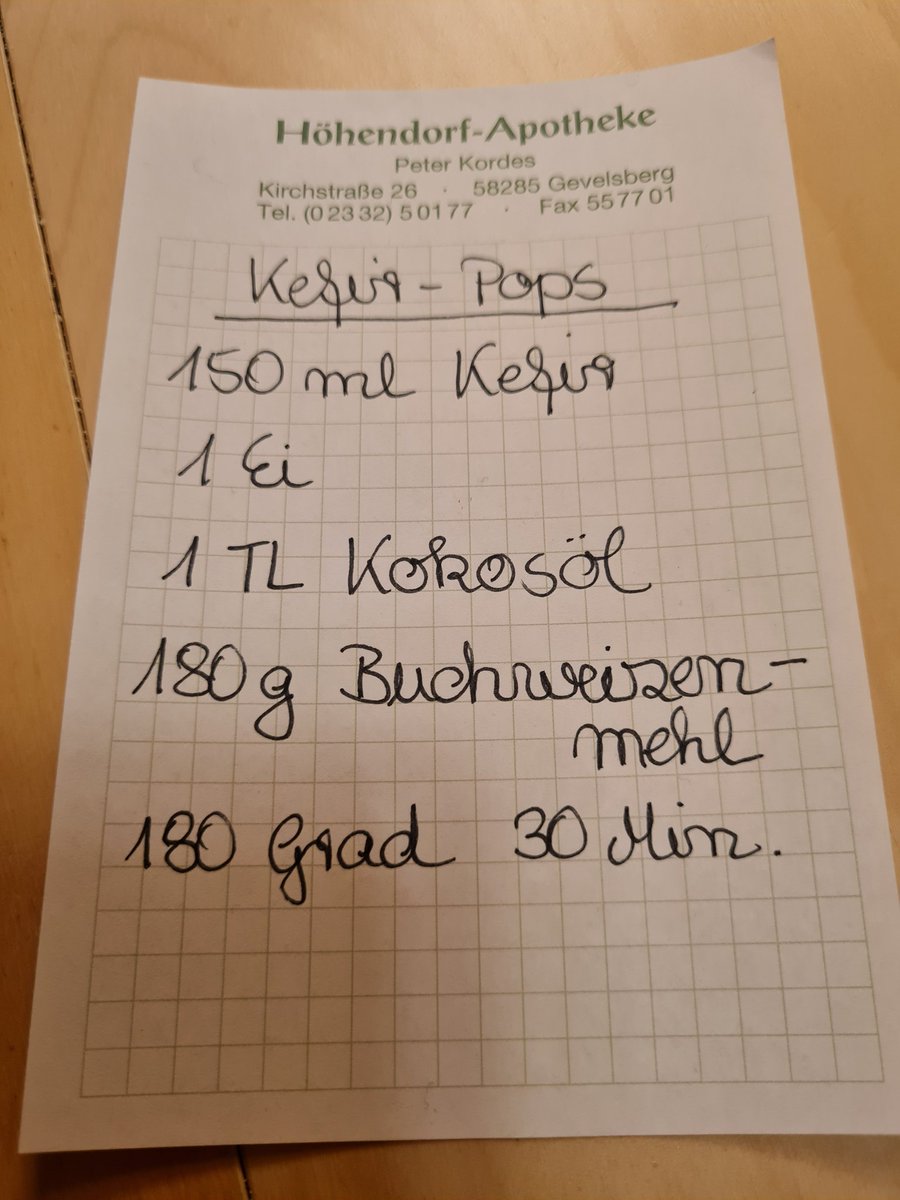 Höhendorf-Apotheke
Peter Kordes
Kirchstraße 26 · 58285 Gevelsberg
Tel. (0 23 32) 5 01 77 · Fax 55 77 01
Kefir - Pops
150 ml Kefir
1 Ei
1 TL Kokosöl
180 g Buchweizen-
mehl
180 Grad 30 Min.